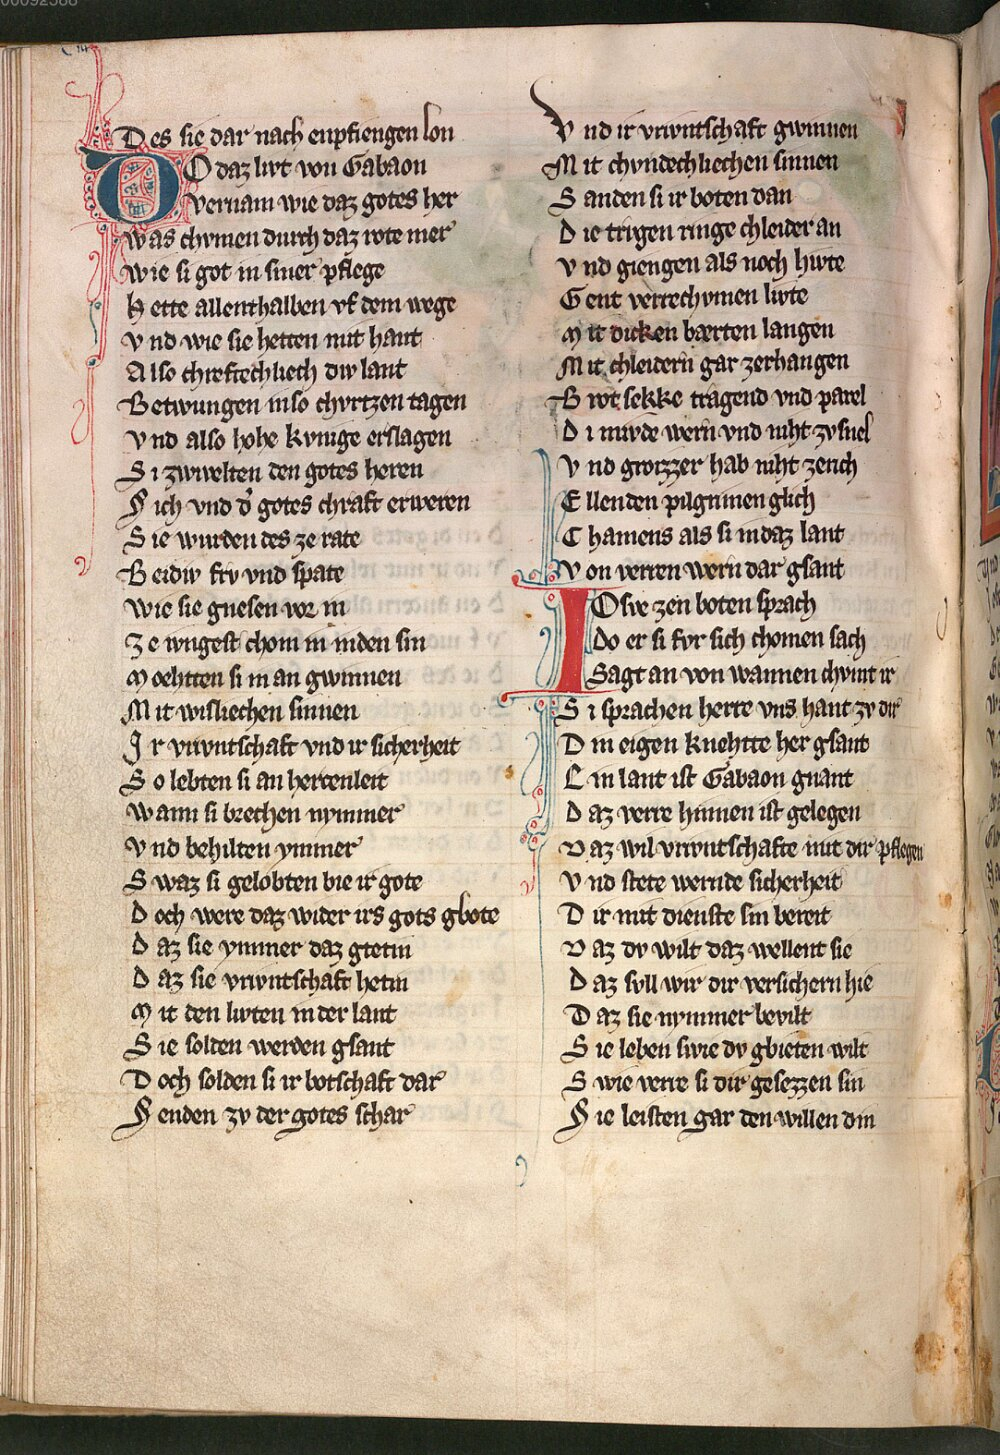 00092588
Des sie dar nach enpfiengen lon
DO daz livt von Gabaon
vernam wie daz gotes her
Was chvmen durch daz rote mer
Wie si got in siner pflege
Hette allenthalben vf dem wege
Vnd wie sie hetten mit hant
Also chreftechliech div lant
Betwungen in so chvrtzen tagen
Vnd also hohe kvnige erslagen
Si zwivelten den gotes heren
Sich vnd d' gotes chraft erweren
Sie wurden des ze rate
Beidiv frv vnd spate
Wie sie gnesen vor in
Ze ivngest chom in in den sin
Moehtten si in an gwinnen
Mit wisliechen sinnen
Ir vrivntschaft vnd ir sicherheit
So lebten si an hertenleit
Wann si brechen nymmer
Vnd behilten ymmer
Swaz si gelobten bie ir gote
Doch were daz wider irs gots gbote
Daz sie ymmer daz gtetin
Daz sie vrivntschaft hetin
Mit den livten in der lant
Sie solden werden gsant
Doch solden si ir botschaft dar
Senden zv der gotes schar
Vnd ir vrivntschaft gwinnen
Mit chvndechliechen sinnen
Sanden si ir boten dan
Die trvgen ringe chleider an
Vnd giengen als noch hivte
Gent verrechvmen livte
Mit dicken bærten langen
Mit chleidern gar zerhangen
Brot sekke tragend vnd parel
Di mvde wern vnd niht zv snel
Vnd grozzer hab niht zerich
Ellenden pilgrimen glich
Chamens als si in daz lant
Von verren wern dar gsant
IOsve zen boten sprach
do er si fvr sich chomen sach
Sagt an von wannen chvmt ir
Si sprachen herre vns hant zv dir
Din eigen knehtte her gsant
Ein lant ist Gabaon gnant
Daz verre hinnen ist gelegen
Daz wil vrivntschafte mit dir pflegen
Vnd stete wernde sicherheit
Dir mit dienste sin bereit
Waz dv wilt daz wellent sie
Daz svll wir dir versichern hie
Daz sie nymmer bevilt
Sie leben swie dv gbieten wilt
Swie verre si dir gesezzen sin
Sie leisten gar den willen din